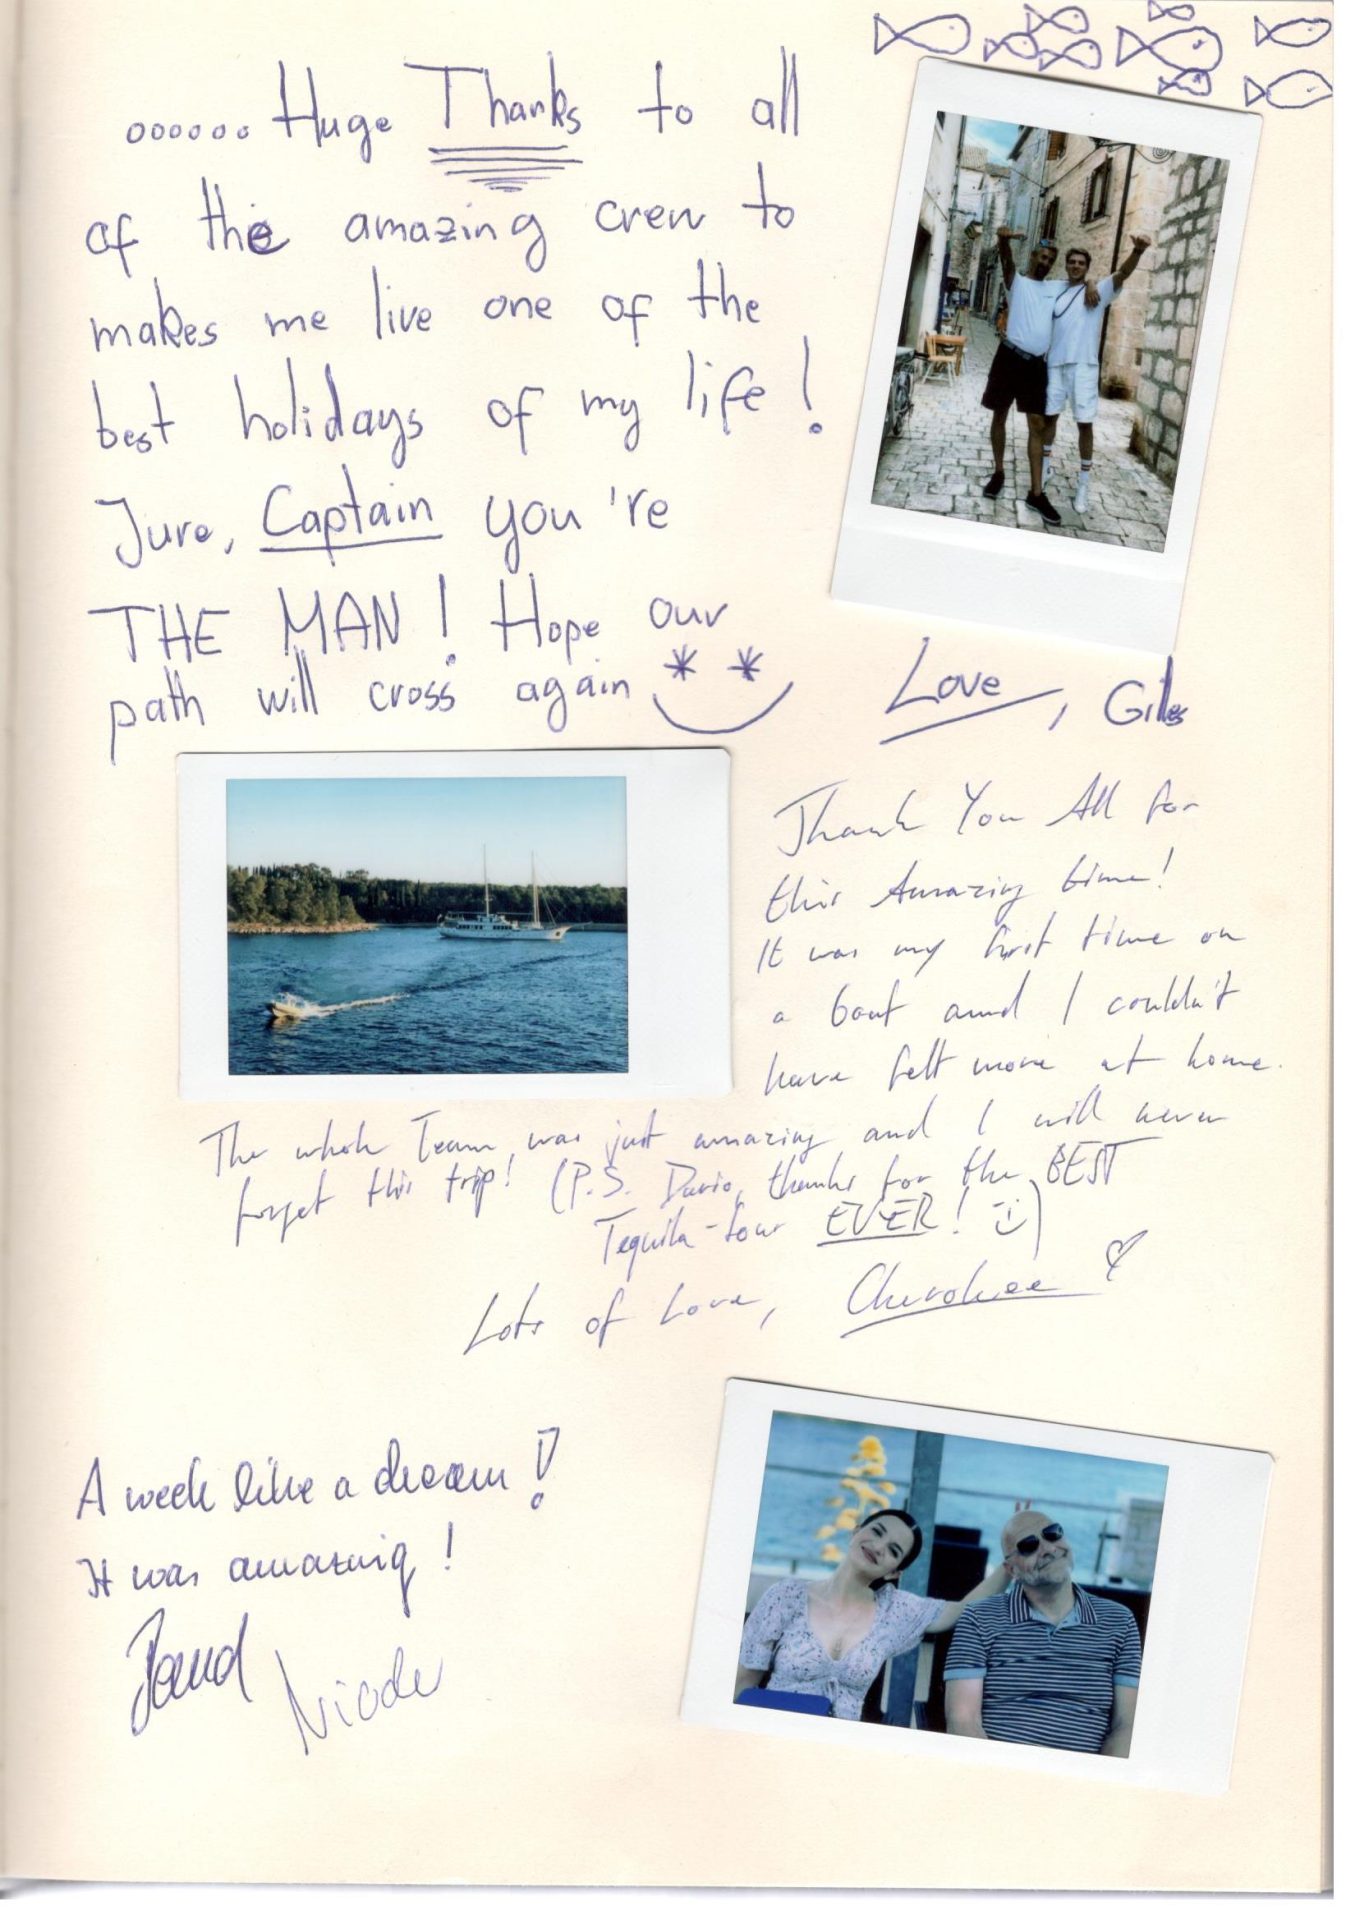 oooooo Huge Thanks to all
of the amazing crew to
makes me live one of the
best holidays of my life!
Jure, Captain you're
THE MAN! Hope our
path will cross again
Love, Gilles
Thank You All for
this Amazing time!
It was my first time on
a boat and I couldn't
have felt more at home.
The whole Team was just amazing and I will never
forget this trip! (P.S. Dario, thanks for the BEST
Tequila-Tour EVER! :))
Lots of Love, Cherokee
A week like a dream!
It was amazing!
Nicole